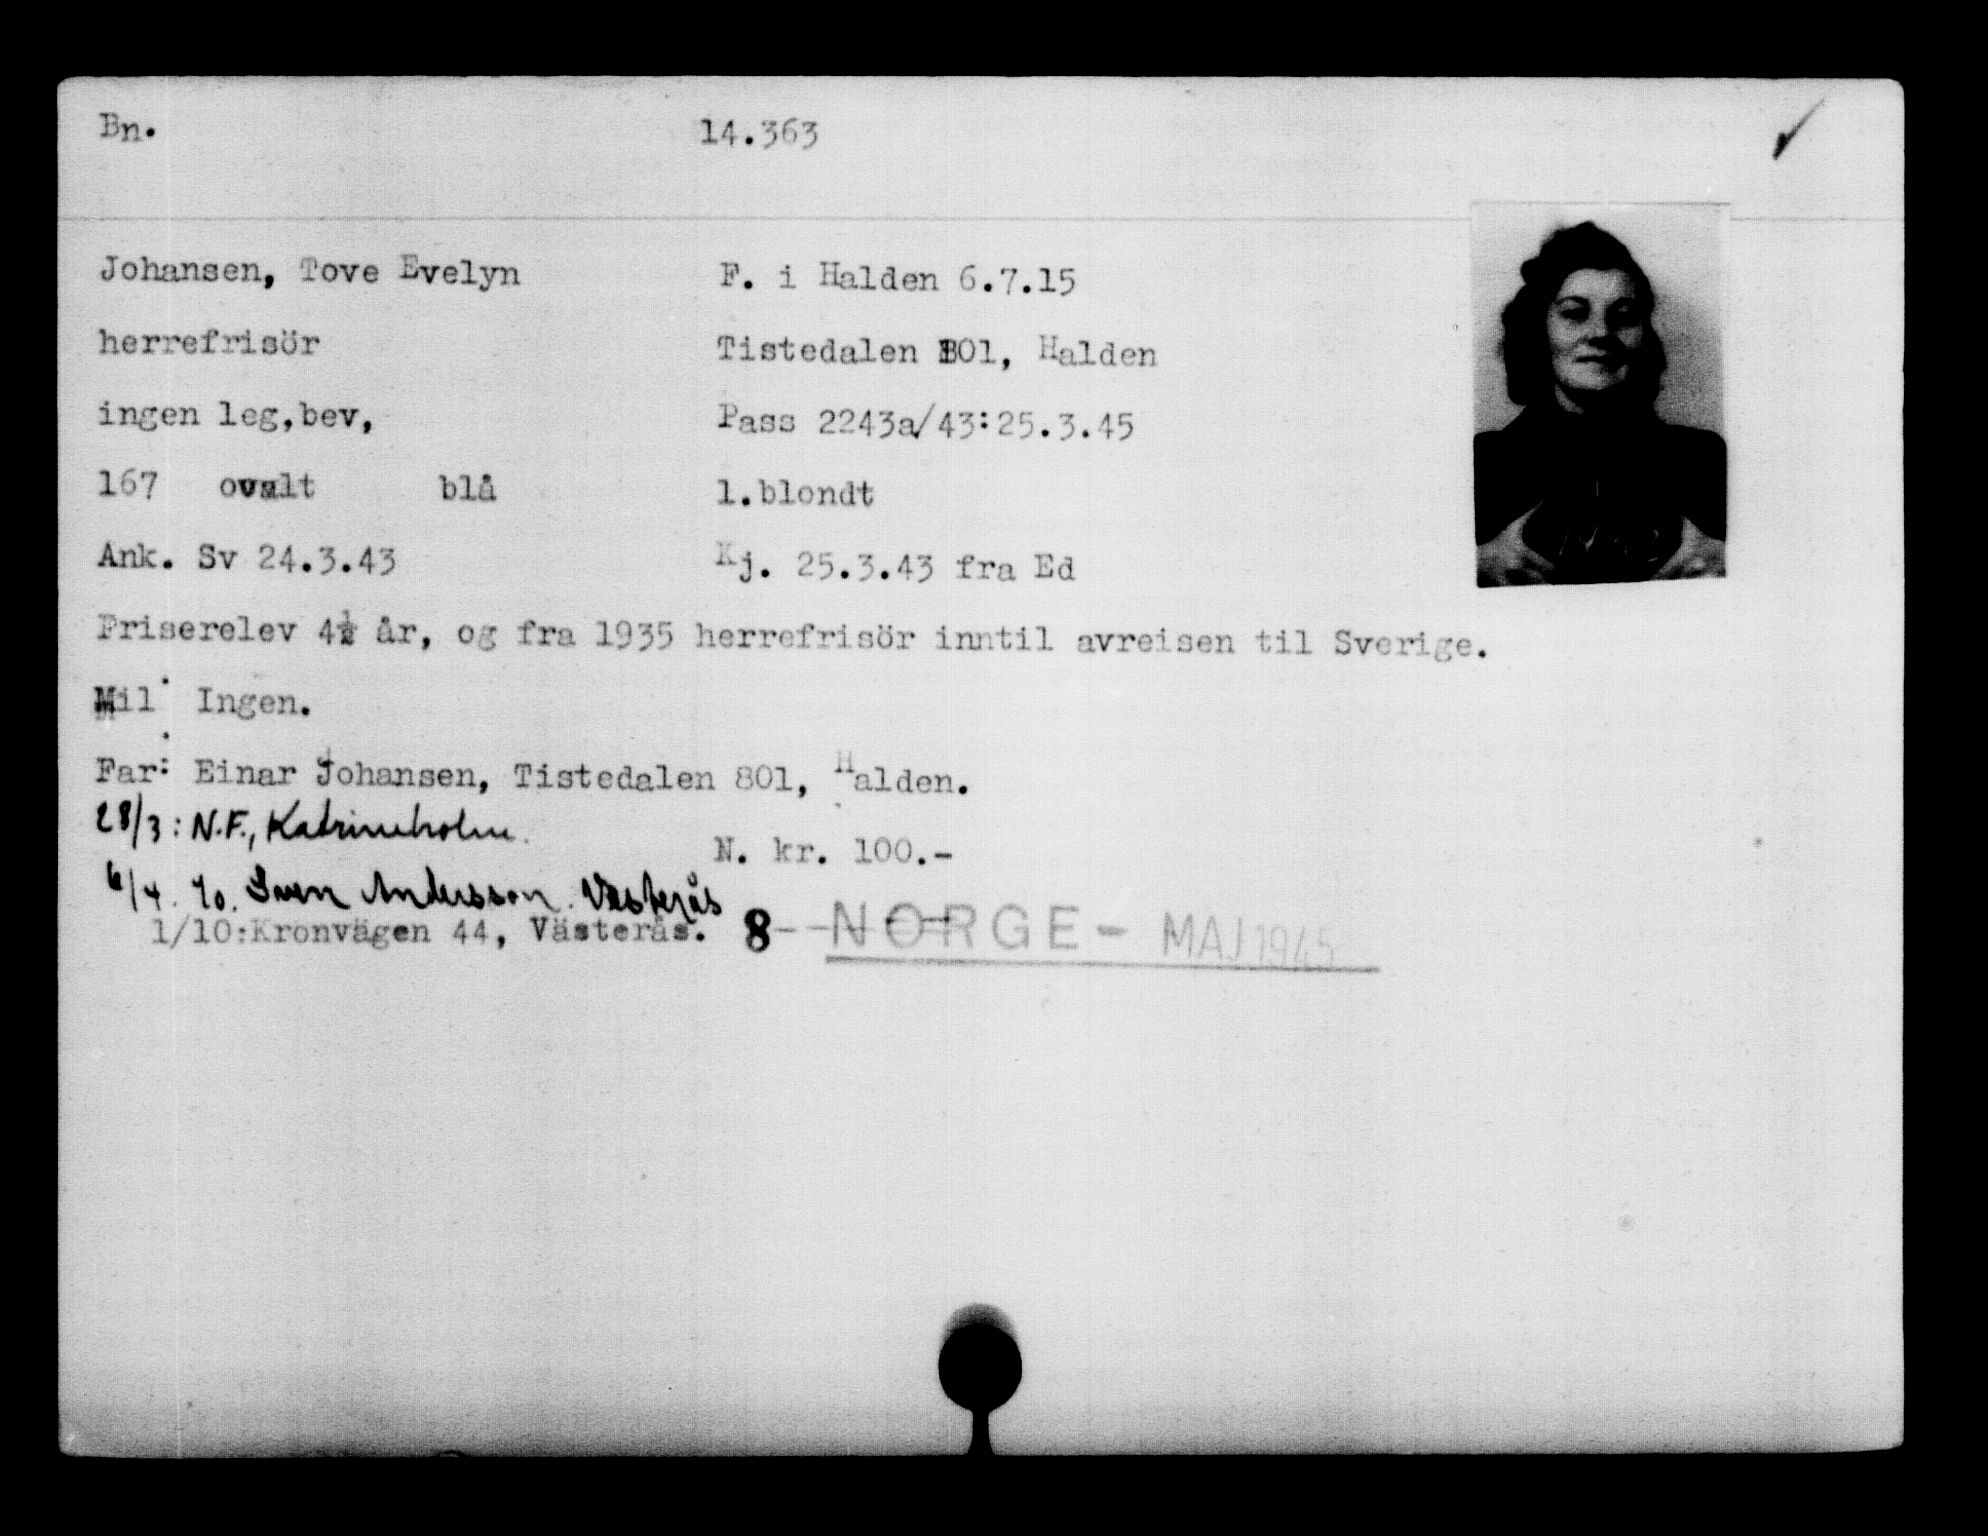 Bn. 14.363
Johansen, Tove Evelyn F. i Halden 6.7.15
herrefrisör Tistedalen 801, Halden
ingen leg,bev, Pass 2243a/43:25.3.45
167 ovalt blå l.blondt
Ank. Sv 24.3.43 Kj. 25.3.43 fra Ed
Friserelev 4½ år, og fra 1935 herrefrisör inntil avreisen til Sverige.
Mil: Ingen.
Far: Einar Johansen, Tistedalen 801, Halden.
28/3: N.F., Katrineholm.
N. kr. 100.-
6/4. c/o. Sven Andersson. Västerås
1/10:Kronvägen 44, Västerås. 8--NORGE- MAJ 1945